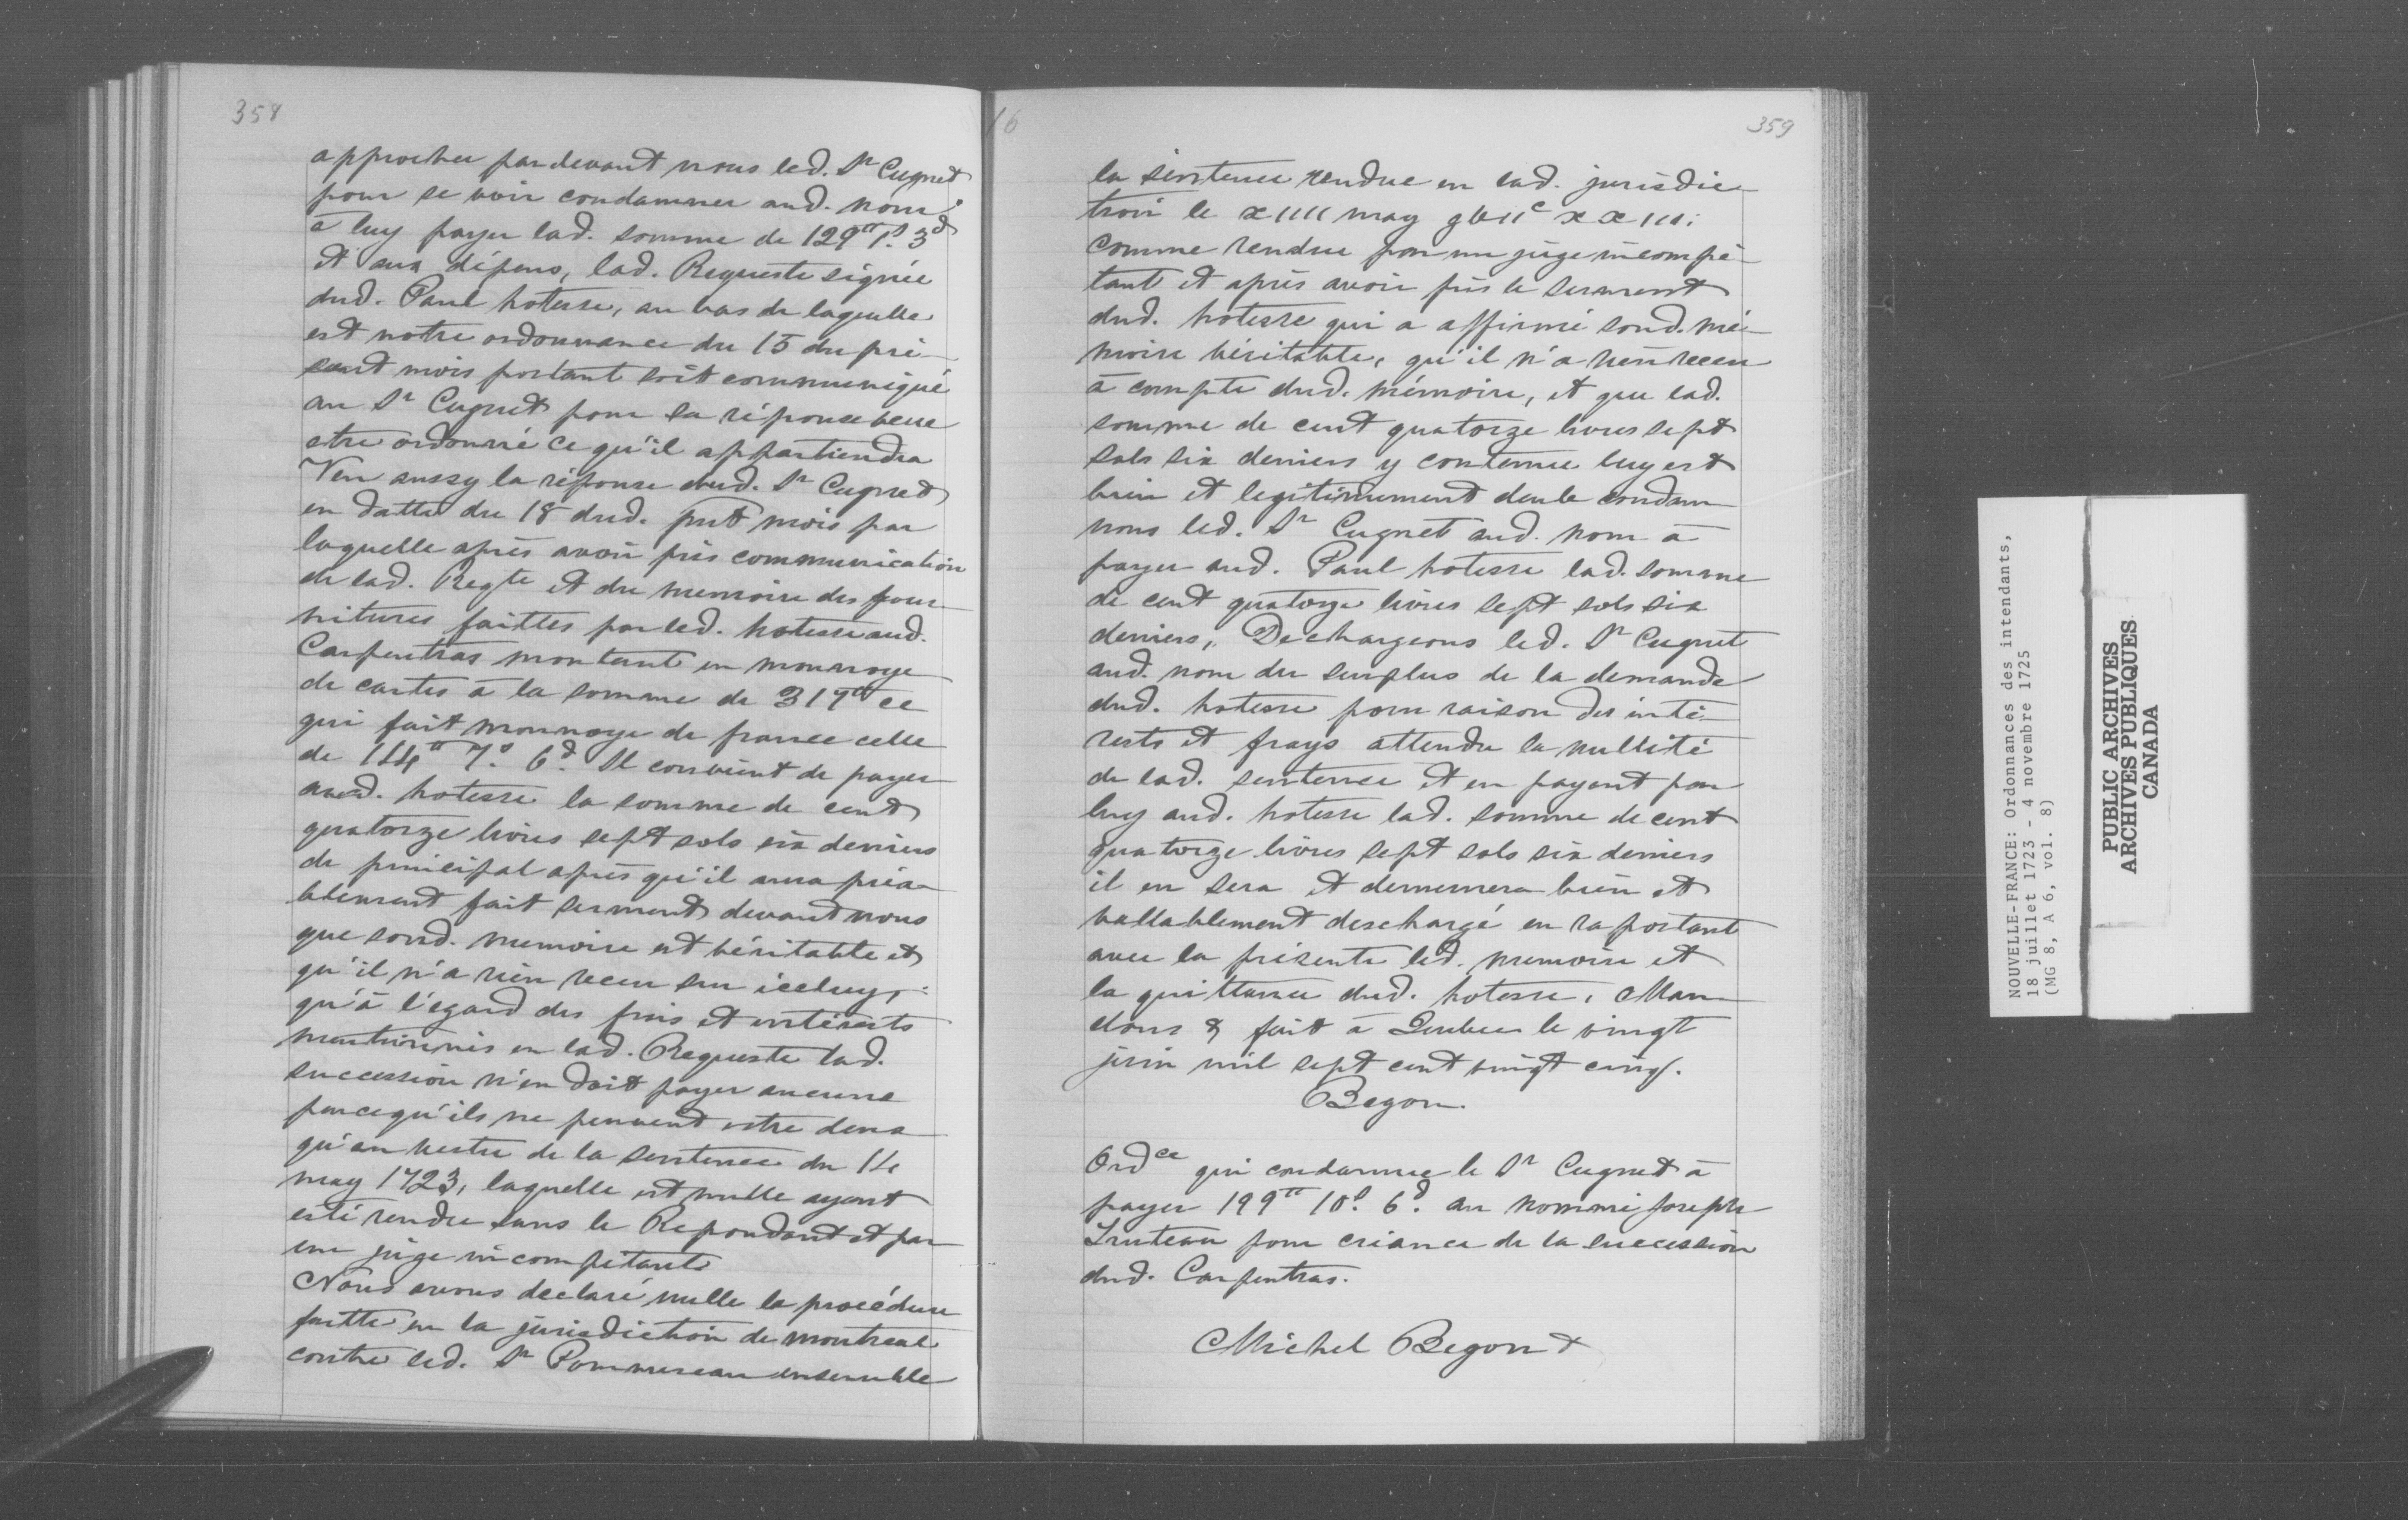 358
approcher pardevant nous led. Sr Cugnet
pour se voir condamner aud. nom
à luy payer lad. somme de 129tt 1s. 3d
et aux dépens, lad. Requeste signée
dud. Paul hotesse, au bas de laquelle
est notre ordonnance du 15 du pré-
sent mois portant soit communiqué
au Sr Cugnet pour sa réponse veue
etre ordonné ce qu'il appartiendra
Veu aussy la réponse dud. Sr Cugnet
en datte du 18 dud. pnt mois par
laquelle après avoir pris communication
de lad. Reqte et du memoire des four-
nitures faittes par led. hotesse aud.
Carpentras montant en monnoye
de cartes à la somme de 317tt ce
qui fait monnoye de france celle
de 114tt 7s. 6d. Il convient de payer
aud. hotesse la somme de cent
quatorze livres sept sols six deniers
de principal après qu'il aura préa-
blement fait serment devant nous
que sond. memoire est véritable et
qu'il n'a rien receu sur iceluy,
qu'à l'egard des frais et intérests
mentionnés en lad. Requeste lad.
succession n'en doit payer aucuns
parcequ'ils ne peuvent estre deus
qu'en vertu de la sentence du 14
may 1723, laquelle est nulle ayant
esté rendue sans le Repondant et par
un juge incompétant
Nous avons declaré nulle la procédure
faitte en la jurisdiction de montreal
contre led. Sr Pommereau ensemble
16
359
la sentence rendue en lad. jurisdic-
tion le xiiii may gbiic xxiii:
comme rendue par un juge incompé-
tant et après avoir pris le serment
dud. hotesse qui a affirmé sond. mé-
moire véritable, qu'il n'a rien receu
à compte dud. mémoire, et que lad.
somme de cent quatorze livres sept
sols six deniers y contenue luy est
bien et legitimement deub condam-
nons led. Sr Cugnet aud. nom à
payer aud. Paul hotesse lad. somme
de cent quatorze livres sept sols six
deniers, Dechargeons led. Sr Cugnet
aud. nom du surplus de la demande
dud. hotesse pour raison des inté-
rests et frays attendu la nullité
de lad. sentence et en payant par
luy aud. hotesse lad. somme de cent
quatorze livres sept sols six deniers
il en sera et demeurera bien et
vallablement deschargé en raportant
avec la présente led. memoire et
la quittance dud. hotesse, Man-
dons & fait à Quebec le vingt
juin mil sept cent vingt cinq.
Begon.
Ordce qui condamne le Sr Cugnet à
payer 199tt 10s. 6d. au nommé Joseph
Truteau pour créance de la succession
dud. Carpentras.
Michel Begon &
NOUVELLE-FRANCE: Ordonnances des intendants,
18 juillet 1723 - 4 novembre 1725
(MG 8, A 6, vol. 8)
PUBLIC ARCHIVES
ARCHIVES PUBLIQUES
CANADA